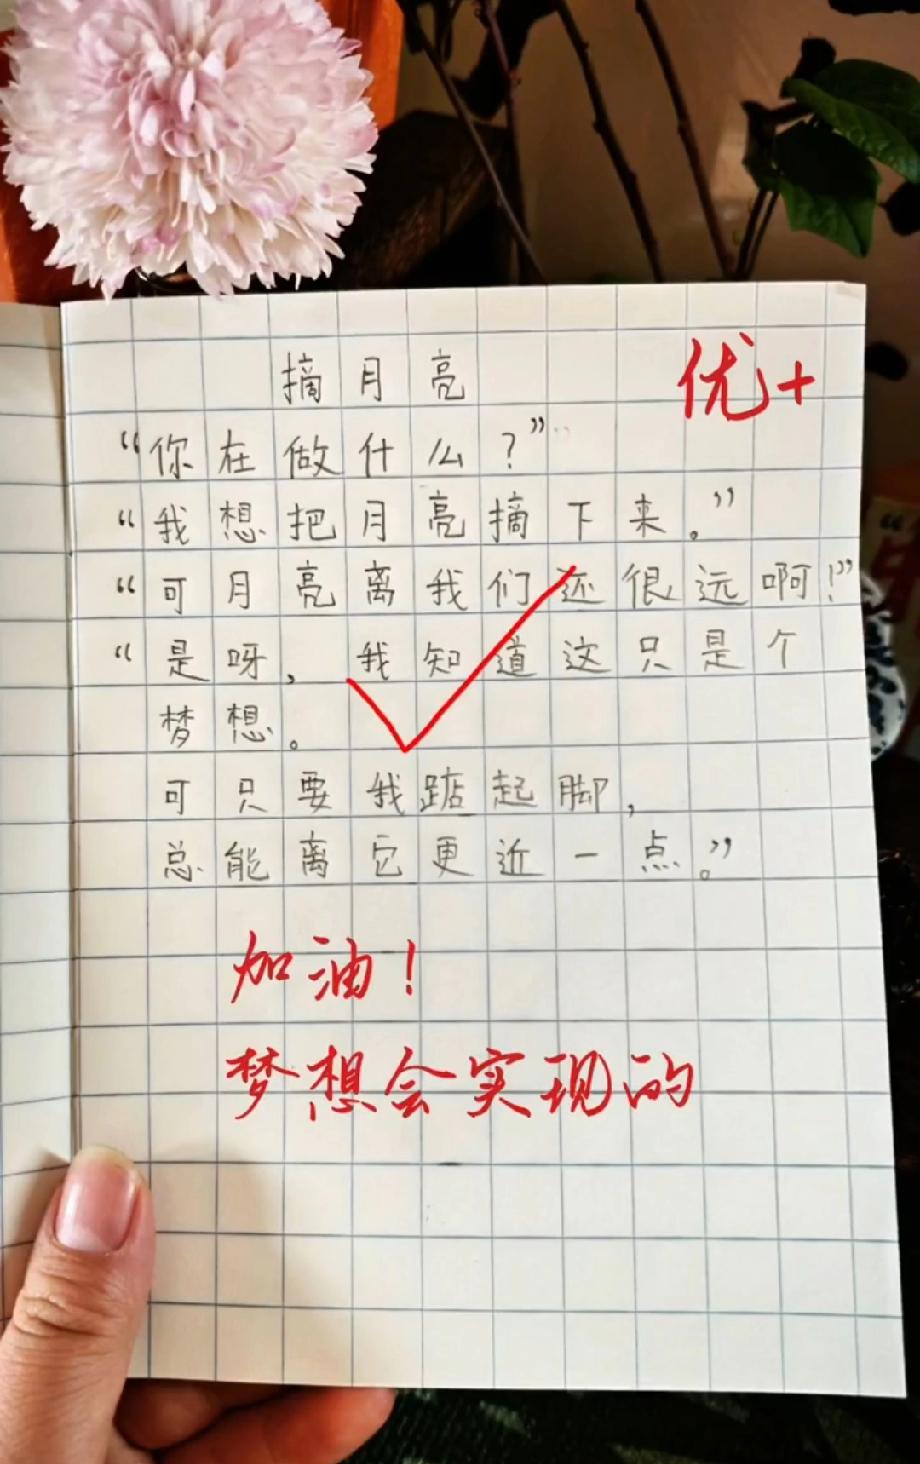 摘月亮
优+
“你在做什么？”
“我想把月亮摘下来。”
“可月亮离我们还很远啊！”
“是呀，我知道这只是个
梦想。
可只要我踮起脚，
总能离它更近一点。”
加油！
梦想会实现的